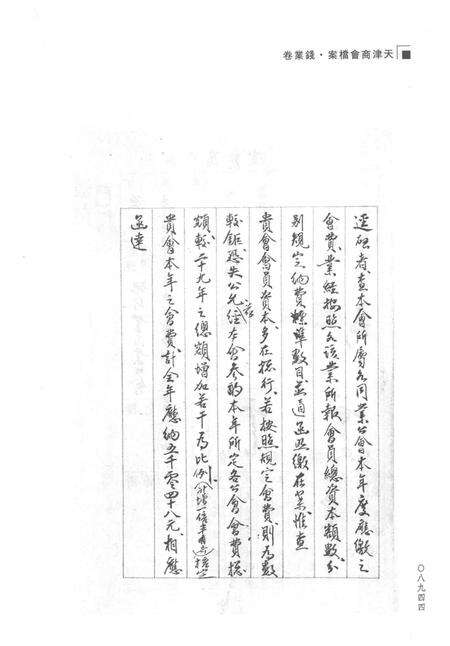 天津商會檔案·錢業卷
逕啟者查本會所屬各同業公會本年度應繳之
會費業經按照各該業所報會員總資本額數分
別規定納費標準數目並通函照繳在案惟查
貴會會員資本多在抵行若按照規定會費則為數
較鉅恐失公允經本會參酌本年所定各公會會費總
額較二十九年之總額增加若干為比例(計增一倍半有)核定
貴會本年之會費計全年應納五千零四十八元相應
函達
〇八九四四